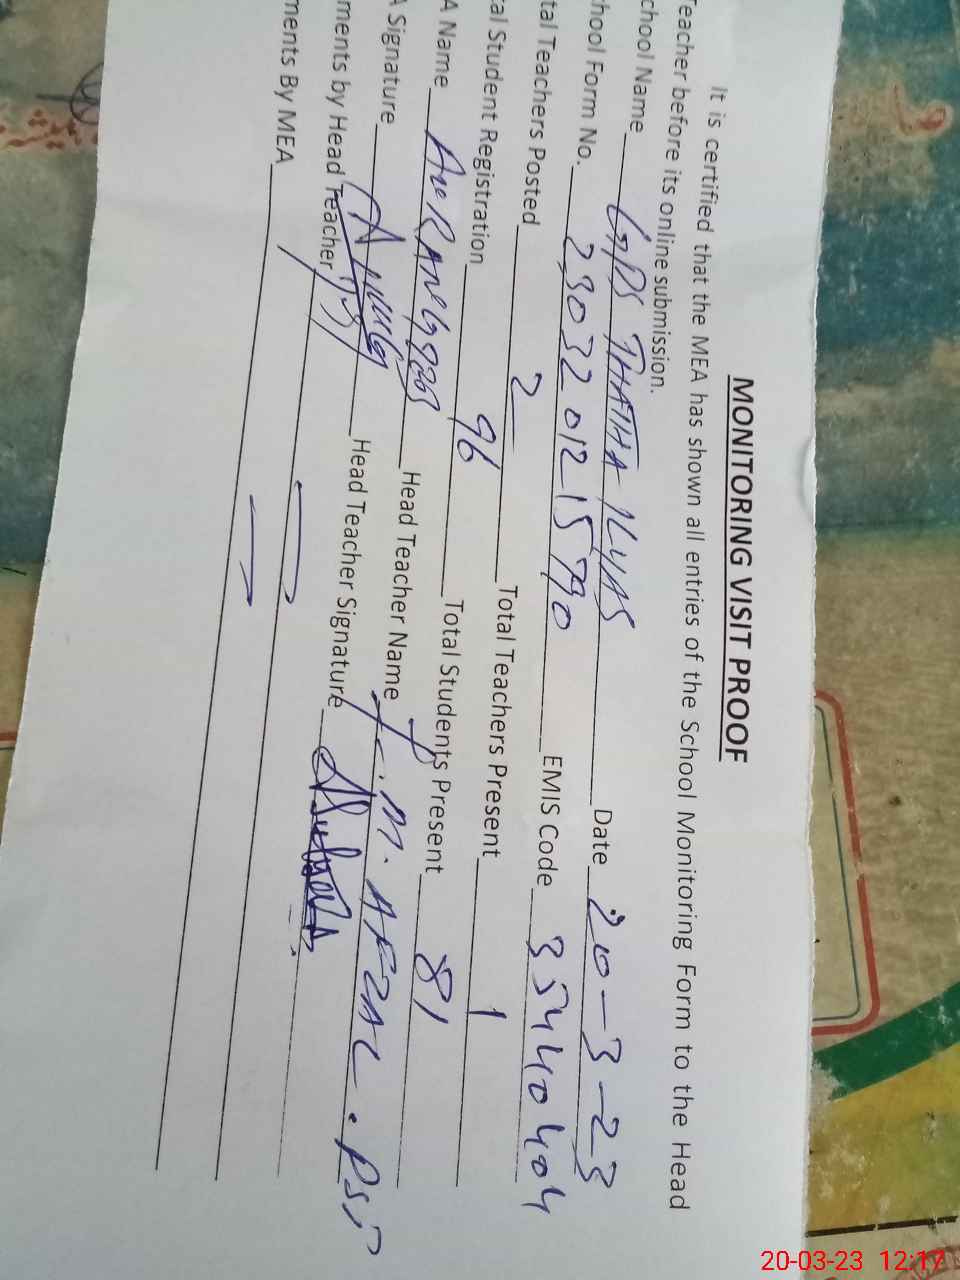 MONITORING VISIT PROOF
It is certified that the MEA has shown all entries of the School Monitoring Form to the Head
Teacher before its online submission.
chool Name GPS THATHA ILYAS Date 20-3-23
hool Form No. 23032 012 15790 EMIS Code 35440404
tal Teachers Posted 2 Total Teachers Present 1
tal Student Registration 96 Total Students Present 81
A Name AURANGZEB Head Teacher Name M. AFZAL. PST
A Signature Head Teacher Signature
ments by Head Teacher
ments By MEA
20-03-23 12:17